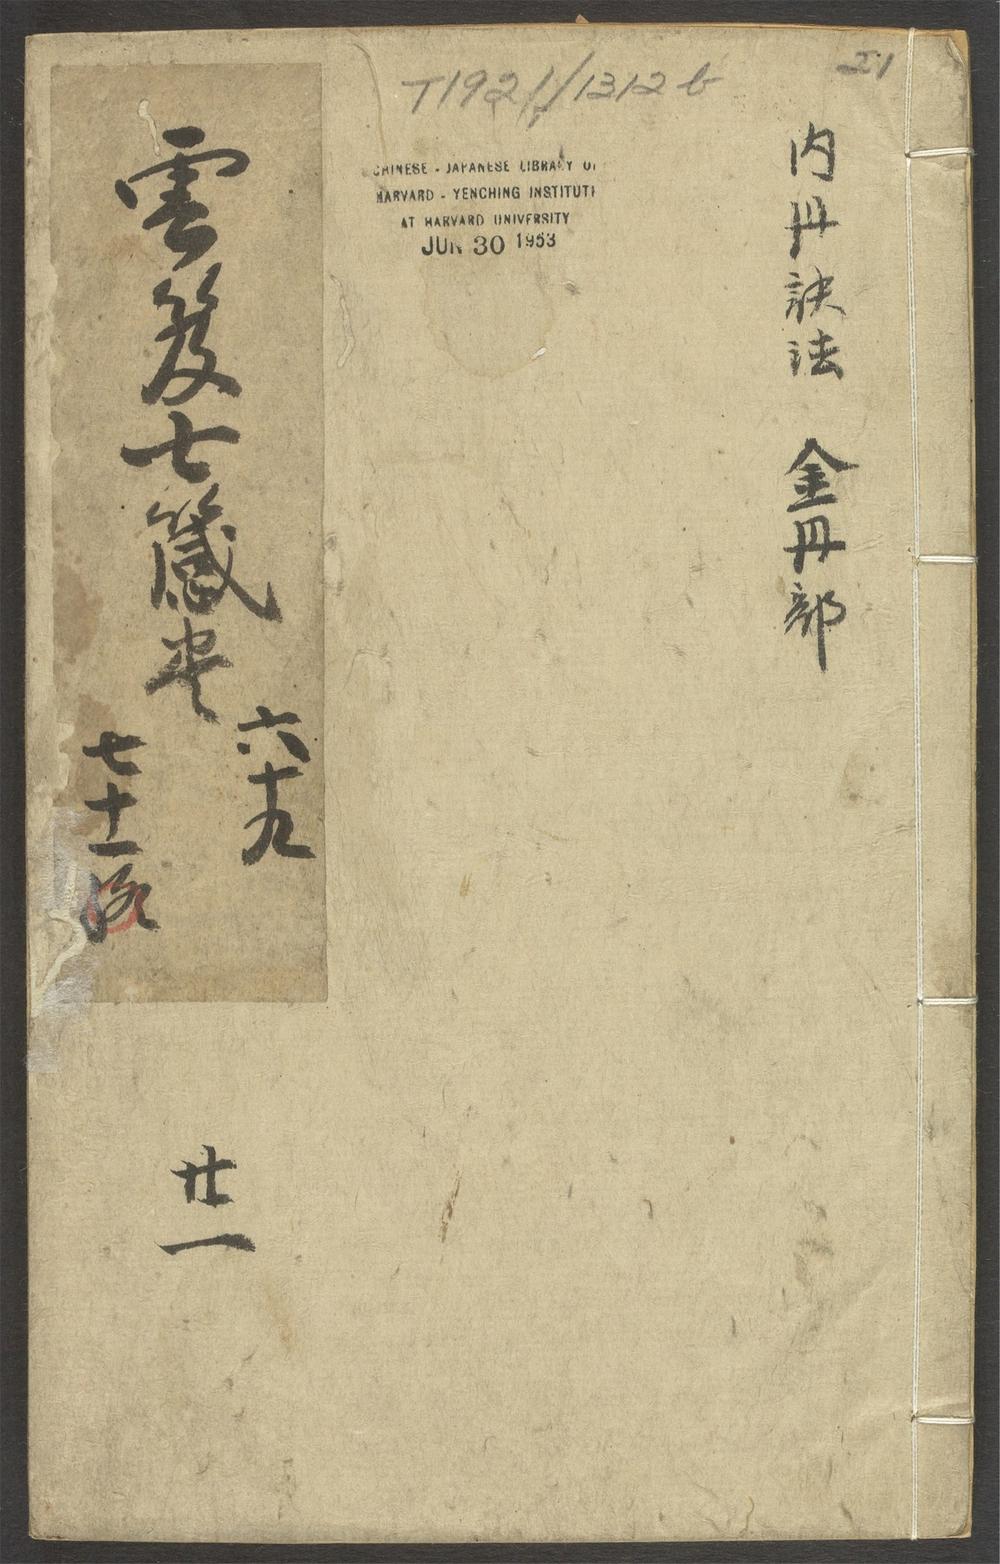 T1921/1312b
21
CHINESE - JAPANESE LIBRARY OF
HARVARD - YENCHING INSTITUTE
AT HARVARD UNIVERSITY
JUN 30 1953
内丹訣法 金丹部
雲笈七籤卷
六十九
七十一
廿一